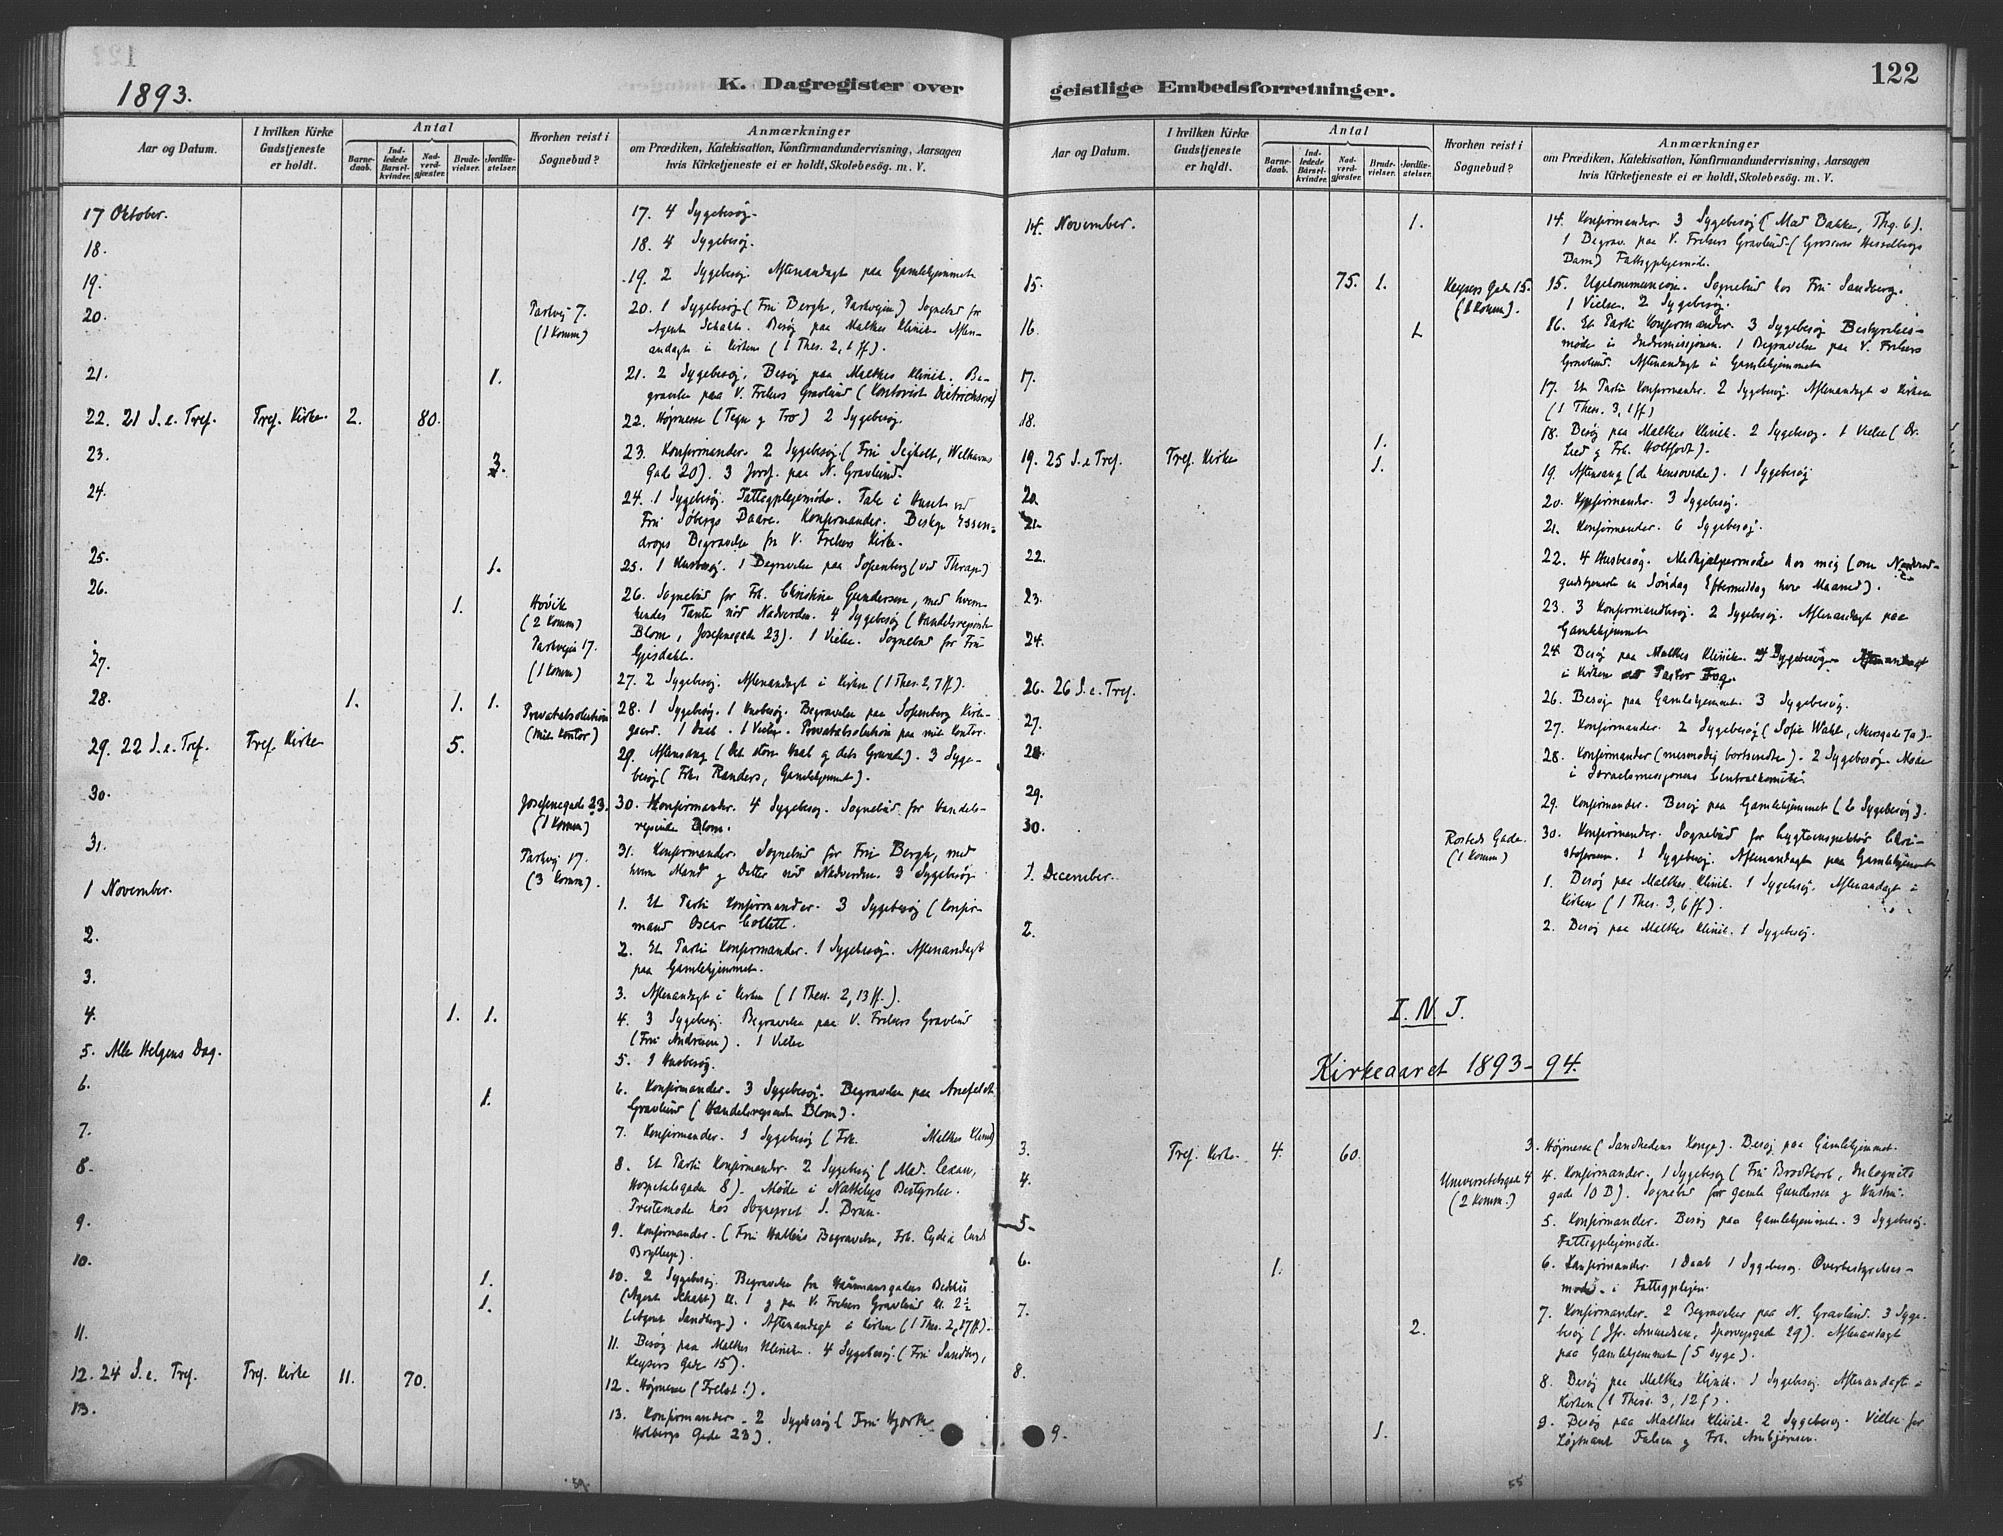 122
1893.
K. Dagregister over geistlige Embedsforretninger.
Aar og Datum.
I hvilken Kirke Gudstjeneste er holdt.
Antal
Barne-daab.
Ind-ledede Barsel-kvinder.
Nad-verd-gjæster.
Brude-vielser.
Jordfæ-stelser.
Hvorhen reist i Sognebud?
Anmærkninger
om Prædiken, Katekisation, Konfirmandundervisning, Aarsagen
hvis Kirketjeneste ei er holdt, Skolebesøg. m. V.
17 Oktober. 17. 4 Sygebesøg.
18. 18. 4 Sygebesøg.
19. 19. 2 Sygebesøg. Aftenandagt paa Gamlehjemmet
20. Parkvej 7. 20. 1 Sygebesøg (Fru Bergh, Parkvejen) Sognebud for
(1 Komm) Agent Schakt. Besøg paa Malthes Klinik. Aften-
andagt i Kirken (1 Thes. 2, 1 ff).
21. 1. 21. 2 Sygebesøg. Besøg paa Malthes Klinik. Be-
gravelse paa V. Frelsers Gravlund (Kontorist Dietrichson)
22. 21 S. e. Tref. Tref. Kirke 2. 80. 22. Højmesse (Tegn og Tro) 2 Sygebesøg.
23. 3. 23. Konfirmander. 2 Sygebesøg (Fru Segholt, Welhavns
Gade 20). 3 Jordf. paa N. Gravlund.
24. 24. 1 Sygebesøg. Fattigplejemøde. Tale i Huset ved
Fru Søbergs Baare. Konfirmander. Biskop Essen-
drops Begravelse fra V. Frelsers Kirke.
25. 1. 25. 1 Husbesøg. 1 Begravelse paa Sofienberg (ved Thrap)
26. 1. Høvik 26. Sognebud for Frk. Christine Gundersen, med hvem
(2 Komm) hendes Tante nød Nadverden. 4 Sygebesøg (Handelsrepræs.
Parkvejen 17. Blom, Josefinegade 23). 1 Vielse. Sognebud for Fru
(1 Komm) Gjesdahl.
27. 27. 2 Sygebesøg. Aftenandagt i Kirken (1 Thes. 2, 7 ff).
28. 1. 1. 1. Privatabsolution 28. 1 Sygebesøg. 1 Husbesøg. Begravelse paa Sofienberg Kirke-
(mit Kontor) gaard. 1 Daab. 1 Vielse. Privatabsolution paa mit Kontor.
29. 22 S. e. Tref. Tref. Kirke 5. 29. Aftensang (Det store Kald og dets Grund). 3 Syge-
besøg (Frk. Randers, Gamlehjemmet).
30. Josefinegade 23. 30. Konfirmander. 4 Sygebesøg. Sognebud for Handels-
(1 Komm) repræsentant Blom.
31. Parkvej 17. 31. Konfirmander. Sognebud for Fru Bergh, med
(3 Komm). hvem Mand og Datter nød Nadverden. 3 Sygebesøg
1 November. 1. Et Parti Konfirmander. 3 Sygebesøg (Konfir-
mand Oscar Collett.
2. 2. Et Parti Konfirmander. 1 Sygebesøg. Aftenandagt
paa Gamlehjemmet.
3. 3. Aftenandagt i Kirken (1 Thess. 2, 13 ff.).
4. 1. 1. 4. 3 Sygebesøg. Begravelse paa V. Frelsers Gravlund
(Fru Andresen). 1 Vielse
5. Alle Helgens Dag. 5. 1 Husbesøg.
6. 1. 6. Konfirmander. 3 Sygebesøg. Begravelse paa
Gravlund (Handelsrepræsentant Blom).
7. 7. Konfirmander. 1 Sygebesøg (Frk. Malthes Klinik)
8. 8. Et Parti Konfirmander. 2 Sygebesøg (Mad.
Hospitalsgaden 8). Møde i Natteljs Bestyrelse.
Prestemøde hos Sogneprest S. Brun.
9. 9. Konfirmander. (Fru Halléns Begravelse, Frk. Lydia
Bryllup).
10. 1. 10. 2 Sygebesøg. Begravelse fra Haumansgadens Bedehus
1. (Agent Schakt) kl. 1 og paa V. Frelsers Gravlund kl. 2½
(Agent Sandberg). Aftenandagt i Kirken (1 Thes. 2, 17 ff).
11. 11. Besøg paa Malthes Klinik. 4 Sygebesøg (Fru Sandberg,
Keysers Gade 15).
12. 24 S. e. Tref. Tref. Kirke 11. 70. 12. Højmesse (Frelst!).
13. 13. Konfirmander. 2 Sygebesøg (Fru Hjorth
Holbergs Gade 23).
59.
Aar og Datum.
I hvilken Kirke Gudstjeneste er holdt.
Antal
Barne-daab.
Ind-ledede Barsel-kvinder.
Nad-verd-gjæster.
Brude-vielser.
Jordfæ-stelser.
Hvorhen reist i Sognebud?
Anmærkninger
om Prædiken, Katekisation, Konfirmandundervisning, Aarsagen
hvis Kirketjeneste ei er holdt, Skolebesøg. m. V.
14. November. 1. 14. Konfirmander. 3 Sygebesøg (Mad Bakken, Thg. 6).
1 Begrav. paa V. Frelsers Gravlund (Grosserer Hesselbergs
Barn) Fattigplejemøde.
15. 75. 1. Keysers Gade 15. 15. Ugekommunion. Sognebud hos Fru Sandberg.
(1 Komm). 1 Vielse. 2 Sygebesøg.
16. 1. 16. Et Parti Konfirmander. 3 Sygebesøg Bestyrelses-
møde i Indremissionen. 1 Begravelse paa V. Frelsers
Gravlund. Aftenandagt i Gamlehjemmet
17. 17. Et Parti Konfirmander. 2 Sygebesøg. Aftenandagt i Kirken
(1 Thess. 3, 1 ff)
18. 1. 18. Besøg paa Malthes Klinik. 2 Sygebesøg. 1 Vielse (Dr.
og Frk. Holtfodt).
19. 25 S. e Tref. Tref. Kirke 1. 19. Aftensang (de hensovede). 1 Sygebesøg
20. 20. Konfirmander. 3 Sygebesøg.
21. 21. Konfirmander. 6 Sygebesøg.
22. 22. 4 Husbesøg. Medhjælpermøde hos mig (om Nadverd-
gudstjeneste en Søndag Eftermiddag hver Maaned).
23. 23. 3 Konfirmandbesøg. 2 Sygebesøg. Aftenandagt paa
Gamlehjemmet
24. 24. Besøg paa Malthes Klinik. 4 Sygebesøg. Aftenandagt
i Kirken Pastor Fog.
26. 26 S. e. Tref. 26. Besøg paa Gamlehjemmet. 3 Sygebesøg.
27. 27. Konfirmander. 2 Sygebesøg (Sofie Wahl, 7a).
28. 28. Konfirmander (mesmodig bortsendte). 2 Sygebesøg. Møde
i Israelsmissionens Centralkomité.
29. 29. Konfirmander. Besøg paa Gamlehjemmet (2 Sygebesøg).
30. Rosteds Gade. 30. Konfirmander. Sognebud for Lygteinspektør Chri-
(1 Komm) stofersen. 1 Sygebesøg. Aftenandagt paa Gamlehjemmet
1. December. 1. Besøg paa Malthes Klinik. 1 Sygebesøg. Aftenandagt i
Kirken (1 Thes. 3, 6 ff).
2. 2. Besøg paa Malthes Klinik. 1 Sygebesøg.
I. N. J.
Kirkeaaret 1893-94.
3. Tref. Kirke. 4. 60. 3. Højmesse (Sandhedens Konge). Besøg paa Gamlehjemmet.
4. Universitetsgad. 4 4. Konfirmander. 1 Sygebesøg (Fru Brodtkorb, Incognito
(2 Komm.) gade 10 B). Sognebud for gamle Gundersen og Hustru.
5. 5. Konfirmander. Besøg paa Gamlehjemmet. 3 Sygebesøg.
Fattigplejemøde.
6. 1. 6. Konfirmander. 1 Daab 1 Sygebesøg. Overbestyrelses-
møde i Fattigplejen.
7. 2. 7. Konfirmander. 2 Begravelser paa N. Gravlund. 3 Syge-
besøg (Jfr. Amundsen, Sporvejsgade 29). Aftenandagt
paa Gamlehjemmet (5 syge).
8. 8. Besøg paa Malthes Klinik. 1 Sygebesøg. Aftenandagt i
Kirken (1 Thess. 3, 12 f).
9. 1. 9. Besøg paa Malthes Klinik. 2 Sygebesøg. Vielse for
Løjtnant Falsen og Frk. Arnbjørnsen.
55